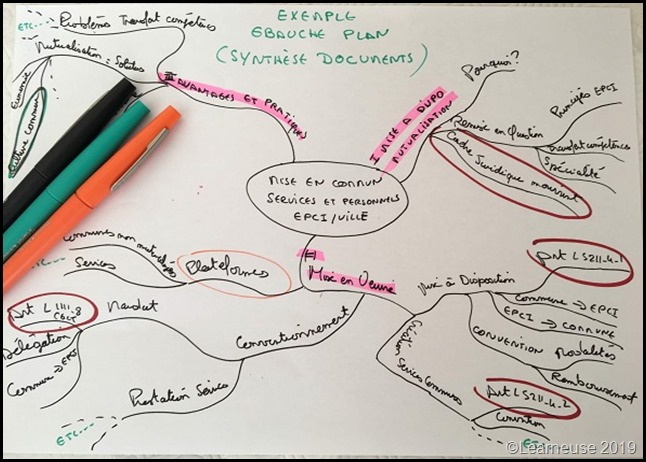 EXEMPLE
EBAUCHE PLAN
(SYNTHÈSE DOCUMENTS)
MISE EN COMMUN
SERVICES ET PERSONNELS
EPCI/VILLE
I MISE A DISPO
MUTUALISATION
Pourquoi?
Remise en Question
Principes EPCI
Transfert compétences
Spécialité
Cadre Juridique mouvant
II
Mise en Oeuvre
Mise à Disposition
Art L5211-4-1
Commune → EPCI
EPCI → COMMUNE
CONVENTION
Modalités
Remboursement
Création
Services Communs
Art L5211-4-2
Convention
ETC
Conventionnement
Mandat
Art L1111-8
CGCT
Délégation
Commune → EPCI
Prestation Services
ETC...
Plateformes
Communes non mutualisées
Services
ETC
III AVANTAGES ET PRATIQUES
Problèmes Transfert compétences
ETC
Mutualisation = Solution
Economie
Culture commune
©Learneuse 2019